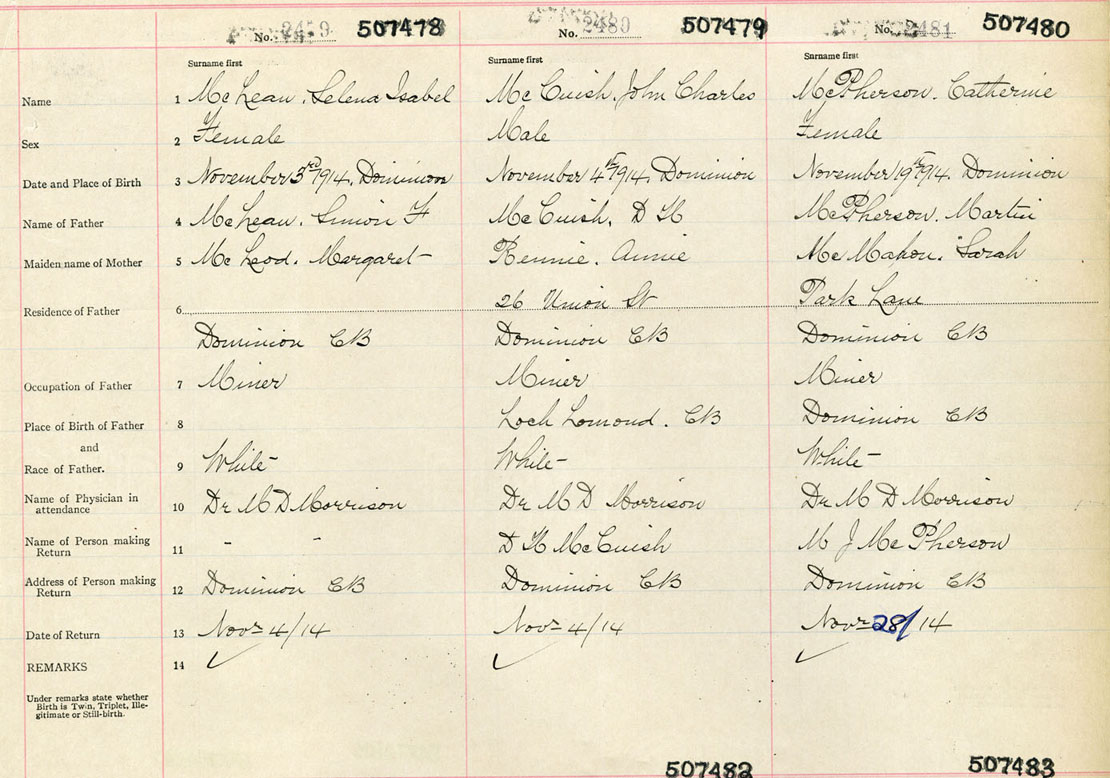 No. 2479 507478 No. 2480 507479 No. 2481 507480
Surname first Surname first Surname first
Name 1 McLean, Selena Isabel McCuish, John Charles McPherson. Catherine
Sex 2 Female Male Female
Date and Place of Birth 3 November 3rd 1914. Dominion November 4th 1914. Dominion November 19th 1914. Dominion
Name of Father 4 McLean. Simon F McCuish. D H McPherson. Martin
Maiden name of Mother 5 McLeod. Margaret Rennie. Annie McMahon. Sarah
26 Union St Park Lane
Residence of Father 6
Dominion CB Dominion CB Dominion CB
Occupation of Father 7 Miner Miner Miner
Place of Birth of Father 8 Loch Lomond. CB Dominion CB
and
Race of Father. 9 White White White
Name of Physician in
attendance 10 Dr M D Morrison Dr M D Morrison Dr M D Morrison
Name of Person making
Return 11 - - D H McCuish M J McPherson
Address of Person making
Return 12 Dominion CB Dominion CB Dominion CB
Date of Return 13 Novr 4/14 Novr 4/14 Novr 28/14
REMARKS 14
Under remarks state whether
Birth is Twin, Triplet, Ille-
gitimate or Still-birth.
507482 507483